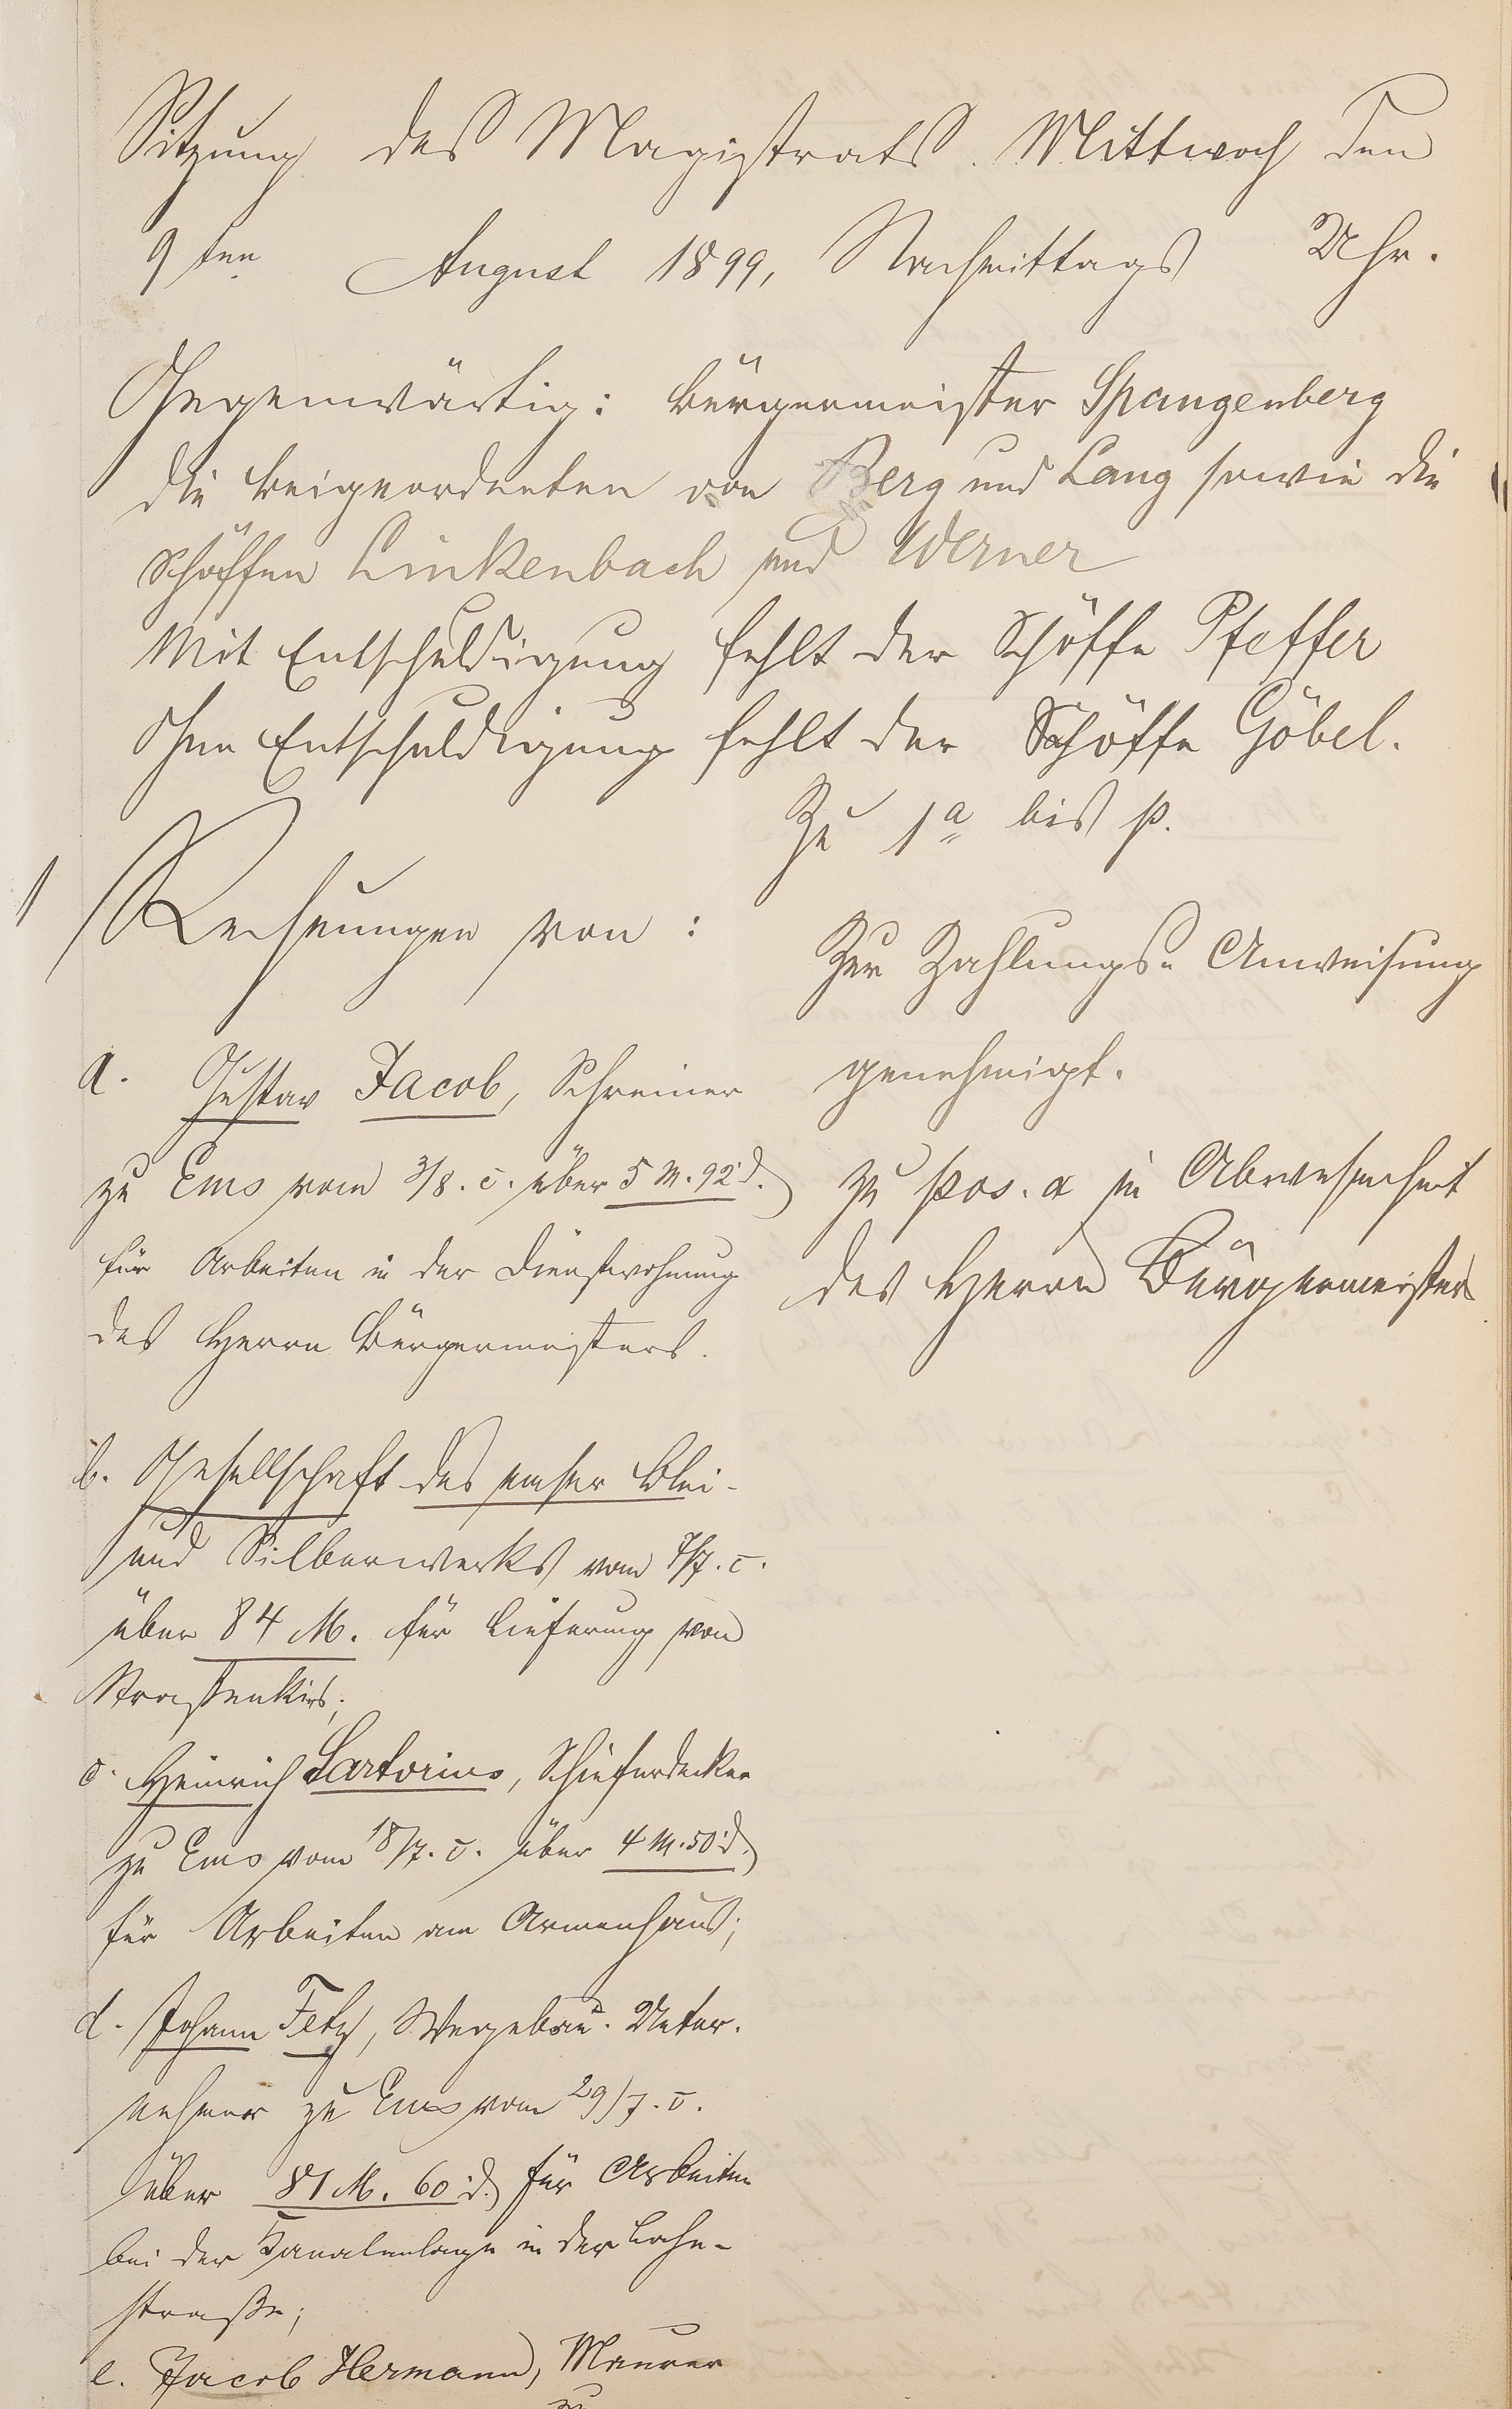 Sitzung des Magistrats. Mittwoch den
9ten August 1899, Nachmittags Uhr.
Gegenwärtig: Bürgermeister Spangenberg
die Beigeordneten von Berg und Lang sowie die
Schöffen Linkenbach und Werner
Mit Entschuldigung fehlt der Schöffe Pfeffer
Ohne Entschuldigung fehlt der Schöffe Göbel.
1 Rechnungen von:
a. Gustav Jacob, Schreiner
zu Ems vom 3/8. c. über 5 M. 92 d.
für Arbeiten in der Dienstwohnung
des Herrn Bürgermeisters.
b. Gesellschaft des Emser Blei-
und Silberwerks vom 7/7. c.
über 84 M. für Lieferung von
Straßenkies;
c. Heinrich Sartorius, Schieferdecker
zu Ems vom 18/7. c. über 4 M. 50 d.
für Arbeiten am Armenhaus;
d. Johann Fetz, Wegebau-Unter-
nehmer zu Ems vom 29/7. c.
über 81 M. 60 d. für Arbeiten
bei der Kanalanlage in der Lahn-
straße;
e. Jacob Hermann, Maurer
zu
Zu 1a bis p.
Zur Zahlungs-Anweisung
genehmigt.
zu pos. a in Abwesenheit
des Herrn Bürgermeisters